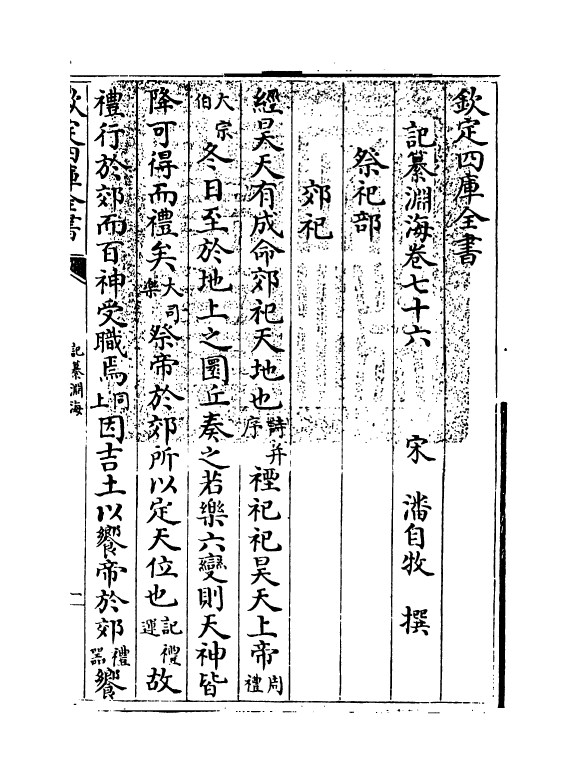 欽定四庫全書
記纂淵海卷七十六　宋　潘自牧　撰
祭祀部
郊祀
經昊天有成命郊祀天地也詩序并禋祀祀昊天上帝周禮
大宗伯冬日至於地上之圜丘奏之若樂六變則天神皆
降可得而禮矣大司樂祭帝於郊所以定天位也記禮運故
禮行於郊而百神受職焉同上因吉土以饗帝於郊禮器饗
欽定四庫全書
記纂淵海
一